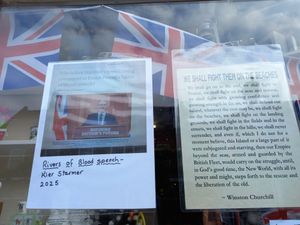 SECURING
BRITAIN'S FUTURE
Rivers of Blood speech -
Kier Starmer
2025
WE SHALL FIGHT THEM ON THE BEACHES
We shall go on to the end, we shall fight in
France, we shall fight on the seas and oceans,
we shall fight with growing confidence and
growing strength in the air, we shall defend our
Island, whatever the cost may be, we shall fight
on the beaches, we shall fight on the landing
grounds, we shall fight in the fields and in the
streets, we shall fight in the hills; we shall never
surrender, and even if, which I do not for a
moment believe, this Island or a large part of it
were subjugated and starving, then our Empire
beyond the seas, armed and guarded by the
British Fleet, would carry on the struggle, until,
in God's good time, the New World, with all its
power and might, steps forth to the rescue and
the liberation of the old.
~ Winston Churchill